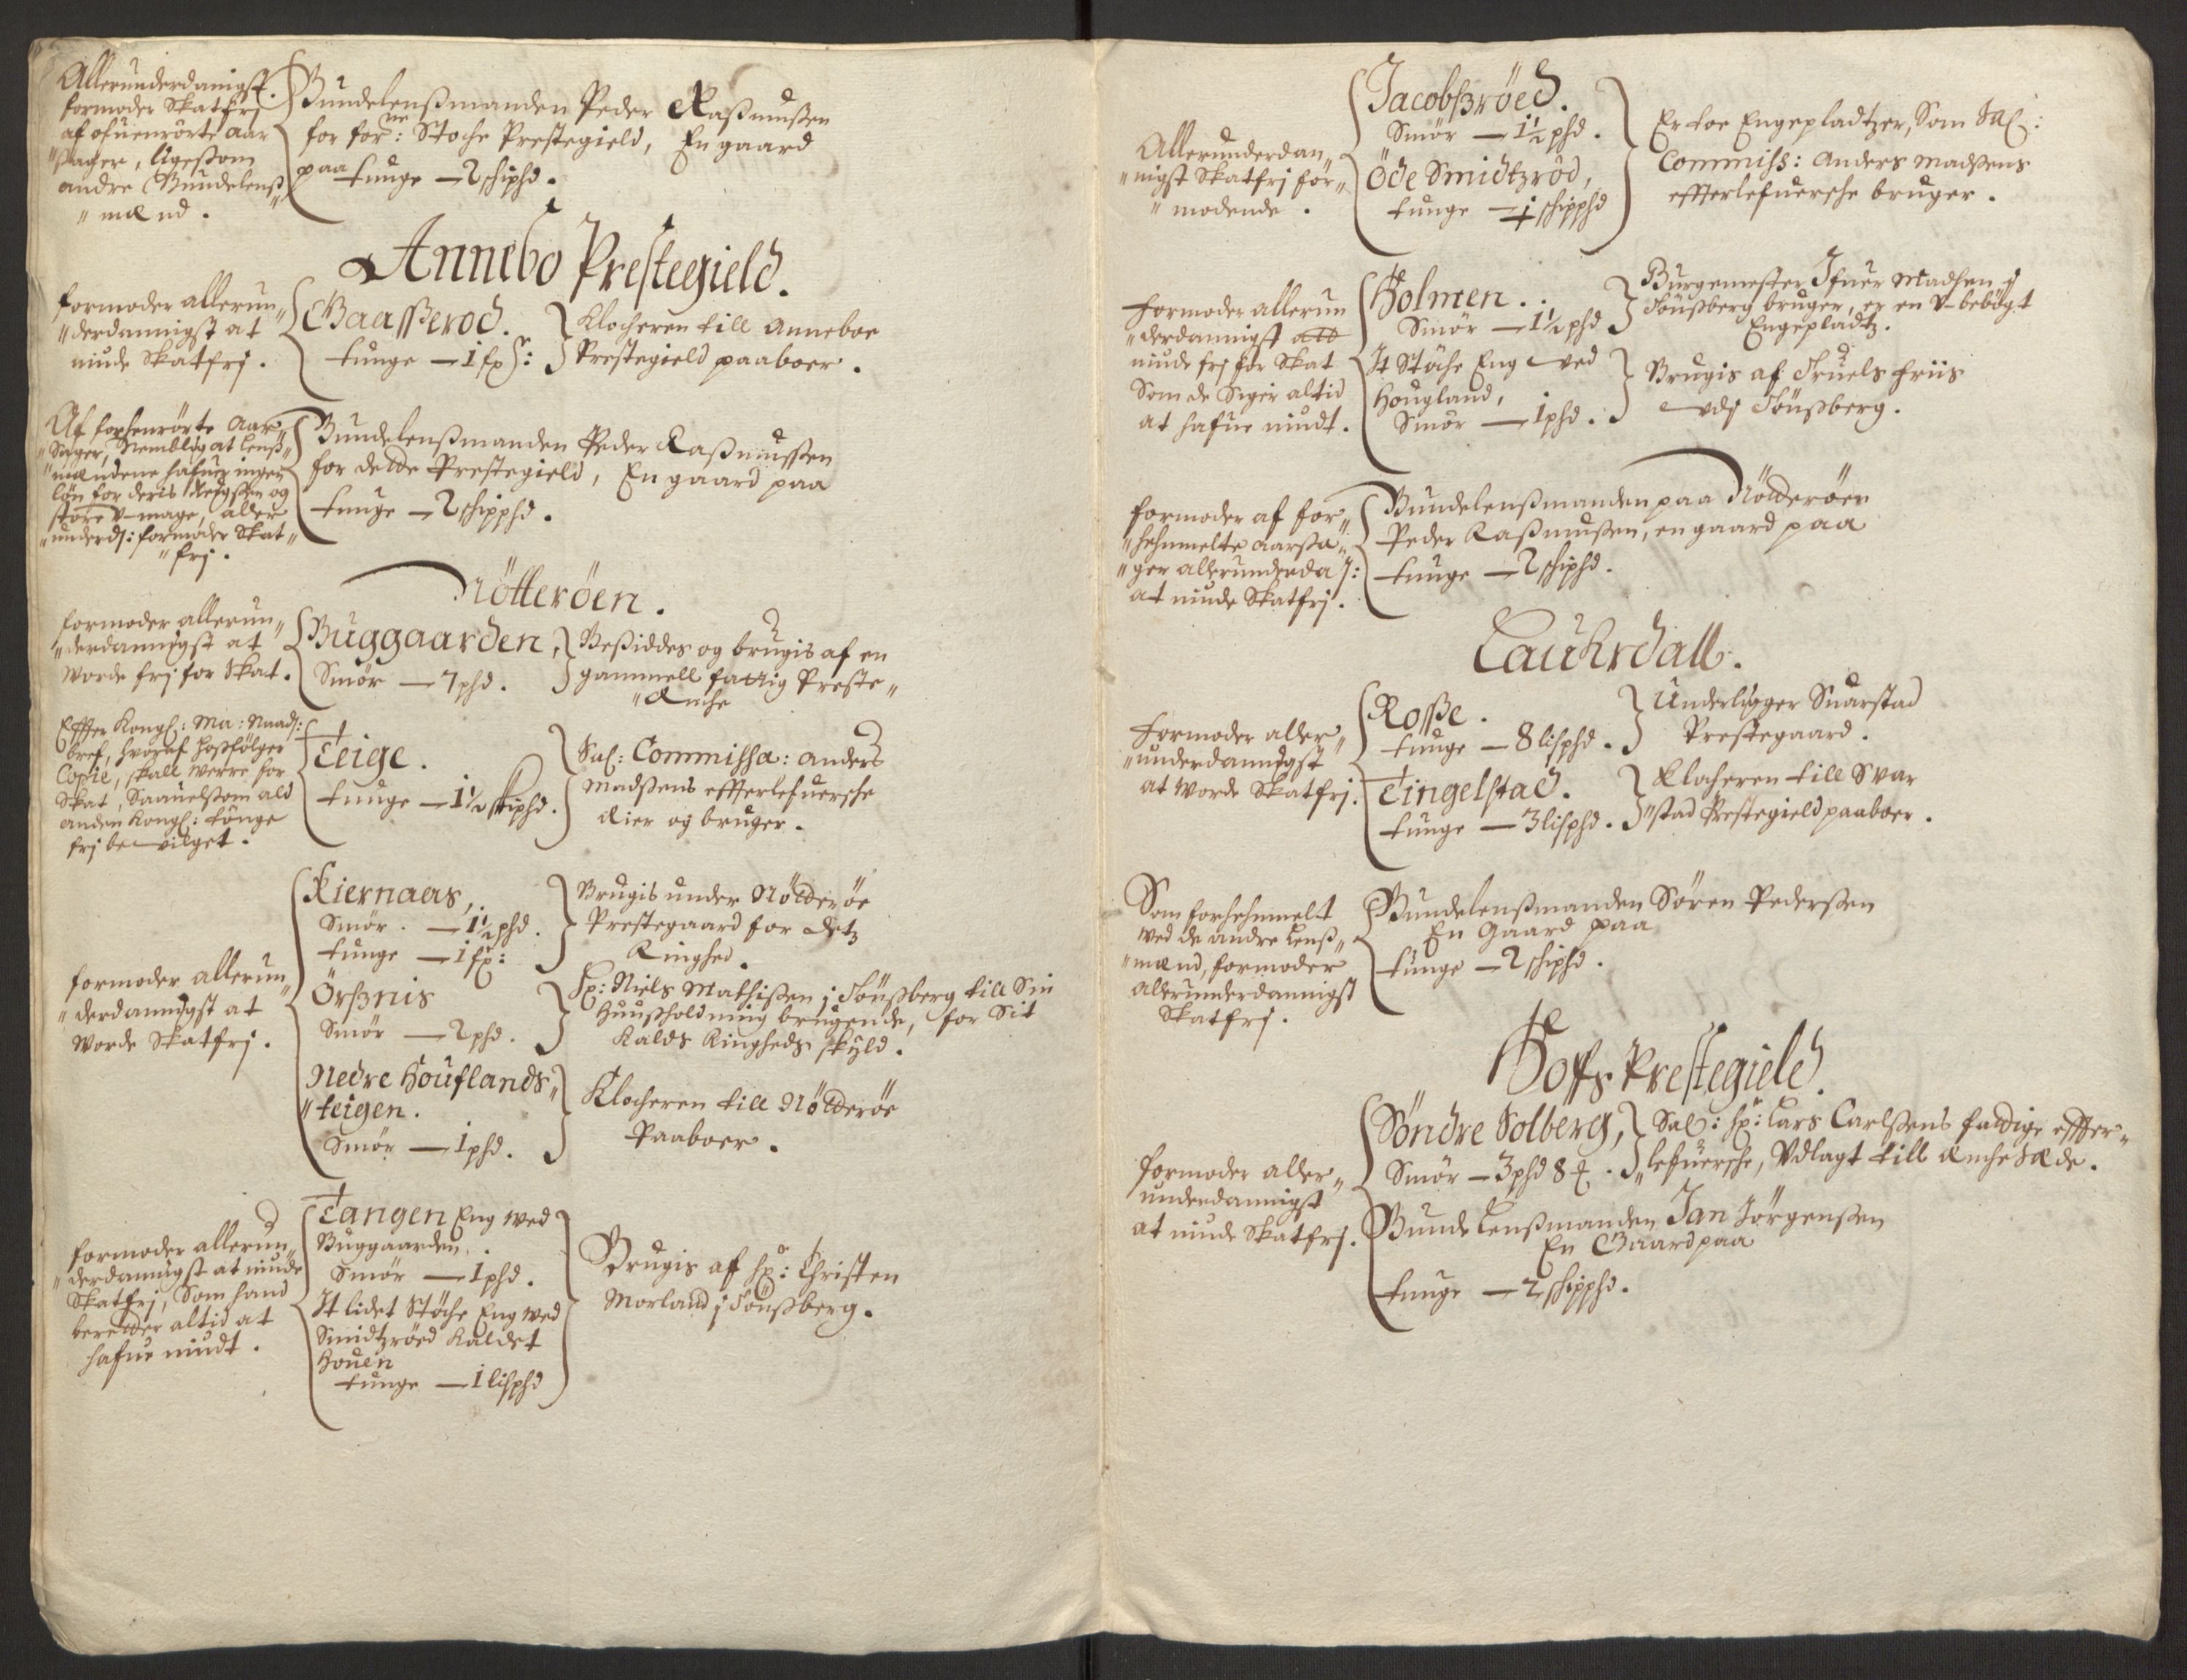 Allerunderdanigst
formoder Skatfrj
af ofuenrörte aar
"sager, ligesom
andre Bundelenß
"mænd.
Bundelenßmanden Peder Raßmußen
for forne: Stoche Prestegield, En gaard
paa tunge — 2 schiphd.
Annebo Prestegield.
formoder allerun"
"derdannigst at
niude Skatfrj.
Gaaßerod.
tunge — 1 fxr:
Klocheren till Anneboe
Prestegield paaboer.
Af forhenrörte Aar"
"Sager, Nemblig at Lenß"
"mændene hafuer ingen
løn for deris Reigßen og
store V-mage, aller
"underdj: formoder Skat"
"frj.
Bundelenßmanden Peder Raßmußen
for dette Prestegield, En gaard paa
tunge — 2 schipphd.
Nötteröen.
formoder allerun"
"derdannigst at
worde frj for Skat.
Buggaarden,
Smör — 7 phd.
Beßiddes og brugis af en
gammell fattig Preste"
"Enche
Effter Kongl: Ma: Naadj:
bref, hvoraf hoßfölger
Copie, skall werre for
Skat, Saauelsom ald
anden Kongl: tönge
frj bevilget.
Teige.
tunge — 1½ skiphd.
Sal: Commissa: Anders
Madßens effterlefuersche
Eier og bruger.
formoder allerun"
"derdannigst at
worde Skatfrj.
Kiernaas,
Smör. — 1½ phd.
tunge — 1 fx:
Brugis under Nötteröe
Prestegaard for detz
Ringhed.
Örßnis
Smör — 2 phd.
Hr: Niels Mathißen j Tönßberg till Sin
Huußholdning brugende, for Sit
Kalds Ringheds skyld.
Nedre Houflands"
"teigen.
Smör — 1 phd.
Klocheren till Nötteröe
Paaboer.
formoder allerun"
"derdannigst at niude
Skatfrj, Som hand
beretter altid at
hafue niudt.
Tangen Eng wed
Buggaarden.
Smör — 1 phd.
It lidet Stöche Eng wed
Smidtzröed Kaldet
Houen
tunge — 1 lisphd
Brugis af Hr: Christen
Morland j Tönßberg.
Allerunderdan"
"nigst Skatfrj for"
"modende.
Jacobßröed.
Smör — 1½ phd.
Öde Smidtzröd,
tunge — 1 schipphd
Er toe Engepladtzer, Som Sal:
Commiss: Anders Madßens
effterlefuersche bruger.
Formoder allerun
"derdannigst
niude frj for Skat
Som de Siger altid
at hafue niudt.
Holmen.
Smör — 1½ phd
Burgemester Ifuer Madsen j
Tönßberg bruger, er en V-bebögt
Engepladtz.
It Stöche Eng ved
Hougland,
Smör — 1 phd.
Brugis af Truels Friis
vdj Tönßberg.
formoder af for"
"hehnmelte aarsa"
"ger allerunderdaj:
at niude Skatfrj.
Bundelenßmanden paa Nötteröen
Peder Raßmußen, en gaard paa
tunge — 2 schiphd.
Lauhrdall.
Formoder aller"
"underdannigst
at worde Skatfrj.
Roße.
tunge — 8 lisphd.
Underligger Suarstad
Prestegaard.
Tingelstad.
tunge — 3 lisphd.
Klocheren till Svar
"stad Prestegield paaboer.
Som forhehnmelt
wed de andre Lenß"
"mænd, formoder
allerunderdannigst
Skatfrj.
Bundelenßmanden Sören Pederßen
En Gaard paa
tunge — 2 schiphd.
Hoffs Prestegield.
formoder aller"
underdannigst
at niude Skatfrj.
Söndre Solberg,
Smör — 3 phd 8 ℔.
Sal: Hr: Lars Carlßens fattige effter"
"lefuersche, Vdlagt till Enche Sæde.
Bunde Lenßmanden Jan Jörgenßen
En Gaard paa
tunge — 2 schipphd.